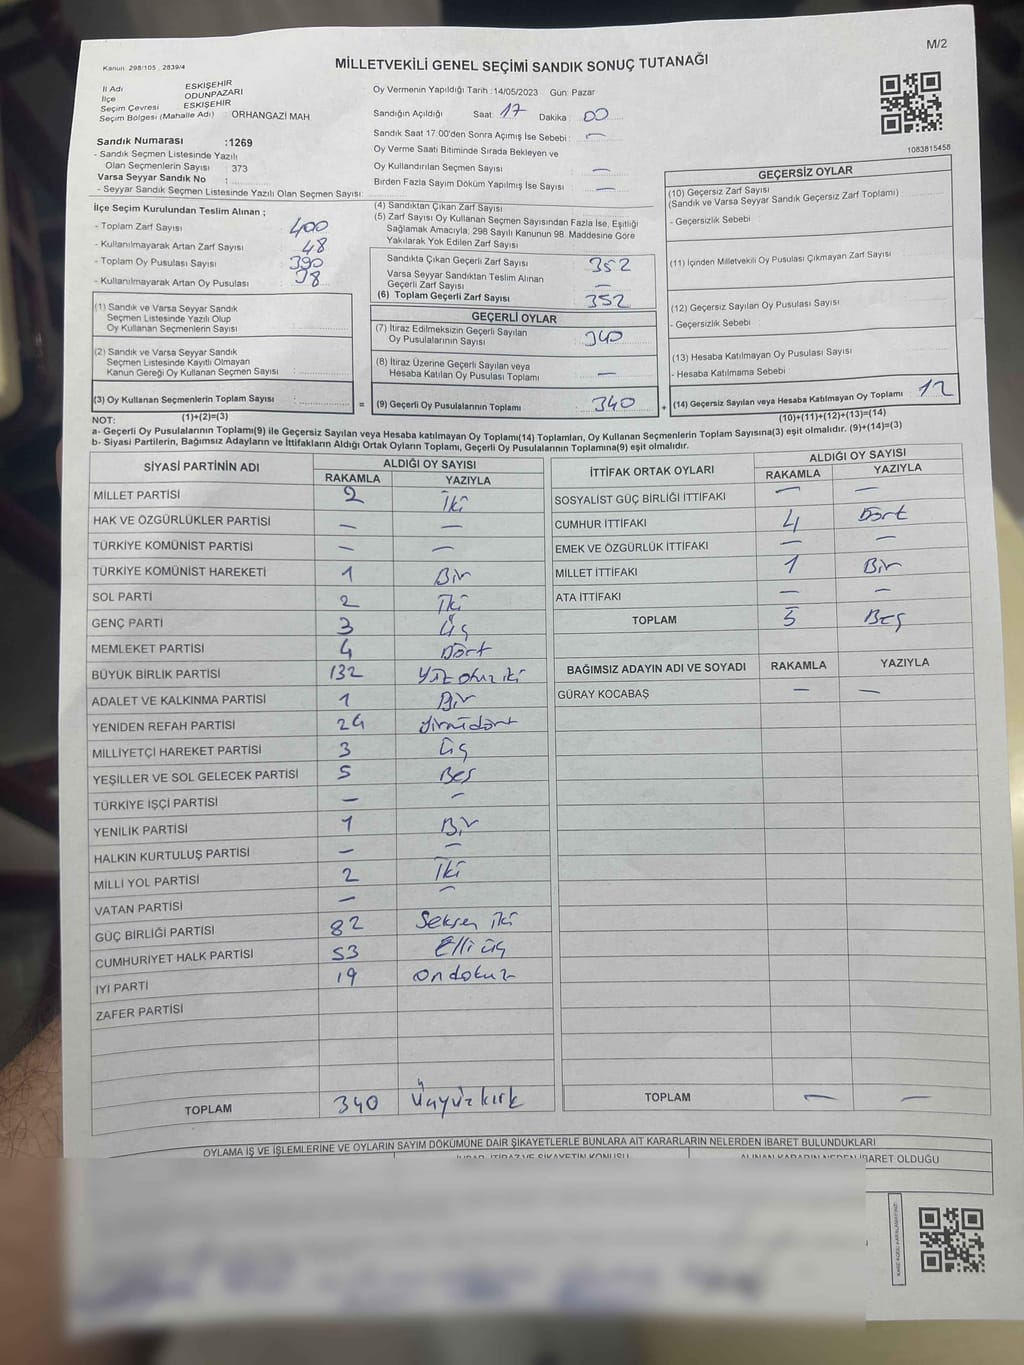 M/2
Kanun 298/105 , 2839/4
MİLLETVEKİLİ GENEL SEÇİMİ SANDIK SONUÇ TUTANAĞI
İl Adı ESKİŞEHİR
İlçe ODUNPAZARI
Seçim Çevresi ESKİŞEHİR
Seçim Bölgesi (Mahalle Adı) : ORHANGAZİ MAH
Sandık Numarası :1269
- Sandık Seçmen Listesinde Yazılı
Olan Seçmenlerin Sayısı : 373
Varsa Seyyar Sandık No :
- Seyyar Sandık Seçmen Listesinde Yazılı Olan Seçmen Sayısı:
Oy Vermenin Yapıldığı Tarih :14/05/2023 Gün: Pazar
Sandığın Açıldığı Saat: 17 Dakika : 00
Sandık Saat 17.00'den Sonra Açımış İse Sebebi : —
Oy Verme Saati Bitiminde Sırada Bekleyen ve
Oy Kullandırılan Seçmen Sayısı —
Birden Fazla Sayım Döküm Yapılmış İse Sayısı : —
1083815458
İlçe Seçim Kurulundan Teslim Alınan ;
- Toplam Zarf Sayısı 400
- Kullanılmayarak Artan Zarf Sayısı 48
- Toplam Oy Pusulası Sayısı : 390
- Kullanılmayarak Artan Oy Pusulası : 38
(1) Sandık ve Varsa Seyyar Sandık
Seçmen Listesinde Yazılı Olup
Oy Kullanan Seçmenlerin Sayısı :
(2) Sandık ve Varsa Seyyar Sandık
Seçmen Listesinde Kayıtlı Olmayan
Kanun Gereği Oy Kullanan Seçmen Sayısı :
(3) Oy Kullanan Seçmenlerin Toplam Sayısı :
(4) Sandıktan Çıkan Zarf Sayısı
(5) Zarf Sayısı Oy Kullanan Seçmen Sayısından Fazla İse, Eşitliği
Sağlamak Amacıyla; 298 Sayılı Kanunun 98. Maddesine Göre
Yakılarak Yok Edilen Zarf Sayısı
Sandıkta Çıkan Geçerli Zarf Sayısı : 352
Varsa Seyyar Sandıktan Teslim Alınan
Geçerli Zarf Sayısı : —
(6) Toplam Geçerli Zarf Sayısı : 352
GEÇERLİ OYLAR
(7) İtiraz Edilmeksizin Geçerli Sayılan
Oy Pusulalarının Sayısı : 340
(8) İtiraz Üzerine Geçerli Sayılan veya
Hesaba Katılan Oy Pusulası Toplamı : —
= (9) Geçerli Oy Pusulalarının Toplamı : 340
GEÇERSİZ OYLAR
(10) Geçersiz Zarf Sayısı
(Sandık ve Varsa Seyyar Sandık Geçersiz Zarf Toplamı)
- Geçersizlik Sebebi :
(11) İçinden Milletvekili Oy Pusulası Çıkmayan Zarf Sayısı
(12) Geçersiz Sayılan Oy Pusulası Sayısı
- Geçersizlik Sebebi :
(13) Hesaba Katılmayan Oy Pusulası Sayısı
- Hesaba Katılmama Sebebi :
+ (14) Geçersiz Sayılan veya Hesaba Katılmayan Oy Toplamı : 12
NOT: (1)+(2)=(3) (10)+(11)+(12)+(13)=(14)
a- Geçerli Oy Pusulalarının Toplamı(9) ile Geçersiz Sayılan veya Hesaba katılmayan Oy Toplamı(14) Toplamları, Oy Kullanan Seçmenlerin Toplam Sayısına(3) eşit olmalıdır. (9)+(14)=(3)
b- Siyasi Partilerin, Bağımsız Adayların ve İttifakların Aldığı Ortak Oyların Toplamı, Geçerli Oy Pusulalarının Toplamına(9) eşit olmalıdır.
SİYASİ PARTİNİN ADI ALDIĞI OY SAYISI
RAKAMLA YAZIYLA
MİLLET PARTİSİ 2 İki
HAK VE ÖZGÜRLÜKLER PARTİSİ — —
TÜRKİYE KOMÜNİST PARTİSİ — —
TÜRKİYE KOMÜNİST HAREKETİ 1 Bir
SOL PARTİ 2 İki
GENÇ PARTİ 3 Üç
MEMLEKET PARTİSİ 4 Dört
BÜYÜK BİRLİK PARTİSİ 132 Yüz otuz iki
ADALET VE KALKINMA PARTİSİ 1 Bir
YENİDEN REFAH PARTİSİ 24 Yirmidört
MİLLİYETÇİ HAREKET PARTİSİ 3 Üç
YEŞİLLER VE SOL GELECEK PARTİSİ 5 Beş
TÜRKİYE İŞÇİ PARTİSİ — —
YENİLİK PARTİSİ 1 Bir
HALKIN KURTULUŞ PARTİSİ — —
MİLLİ YOL PARTİSİ 2 İki
VATAN PARTİSİ — —
GÜÇ BİRLİĞİ PARTİSİ 82 Seksen iki
CUMHURİYET HALK PARTİSİ 53 Elli üç
İYİ PARTİ 19 Ondokuz
ZAFER PARTİSİ
TOPLAM 340 Üçyüzkırk
İTTİFAK ORTAK OYLARI ALDIĞI OY SAYISI
RAKAMLA YAZIYLA
SOSYALİST GÜÇ BİRLİĞİ İTTİFAKI — —
CUMHUR İTTİFAKI 4 Dört
EMEK VE ÖZGÜRLÜK İTTİFAKI — —
MİLLET İTTİFAKI 1 Bir
ATA İTTİFAKI — —
TOPLAM 5 Beş
BAĞIMSIZ ADAYIN ADI VE SOYADI RAKAMLA YAZIYLA
GÜRAY KOCABAŞ — —
TOPLAM — —
OYLAMA İŞ VE İŞLEMLERİNE VE OYLARIN SAYIM DÖKÜMÜNE DAİR ŞİKAYETLERLE BUNLARA AİT KARARLARIN NELERDEN İBARET BULUNDUKLARI